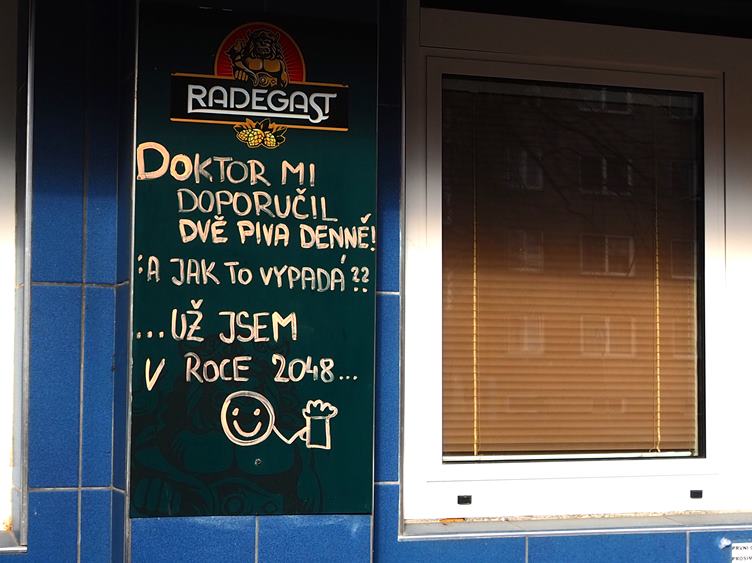 RADEGAST
DOKTOR MI
DOPORUČIL
DVĚ PIVA DENNĚ!
:A JAK TO VYPADÁ??
...UŽ JSEM
V ROCE 2048...
PRVNÍ
PROSÍM